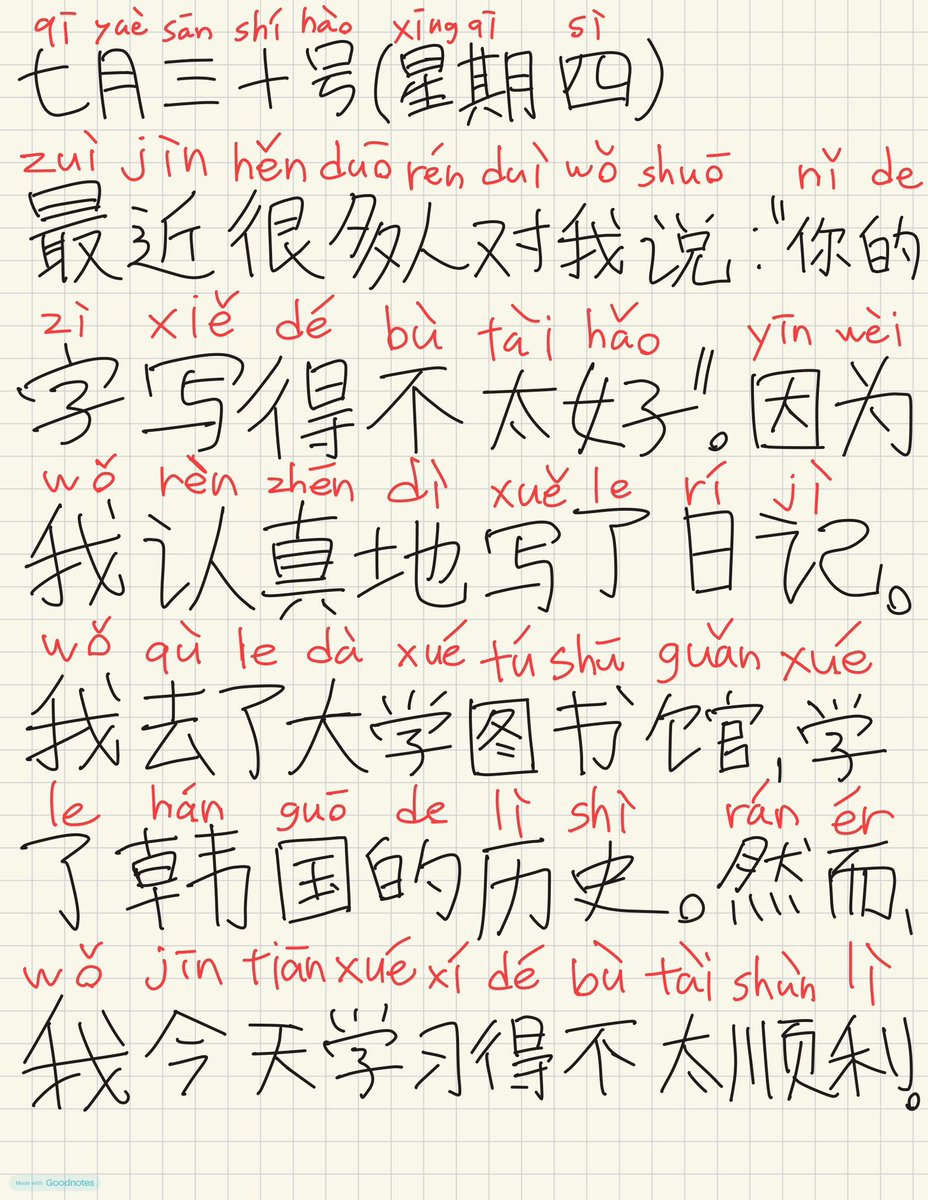 qī yuè sān shí hào xīng qī sì
七月三十号(星期四)
zuì jìn hěn duō rén duì wǒ shuō nǐ de
最近很多人对我说:"你的
zì xiě dé bù tài hǎo yīn wèi
字写得不太好"。因为
wǒ rèn zhēn dì xuě le rí jì
我认真地写了日记。
wǒ qù le dà xué tú shū guǎn xué
我去了大学图书馆,学
le hán guō de lì shì rán ér
了韩国的历史。然而,
wǒ jīn tiān xué xí dé bù tài shùn lì
我今天学习得不太顺利。
Made with Goodnotes